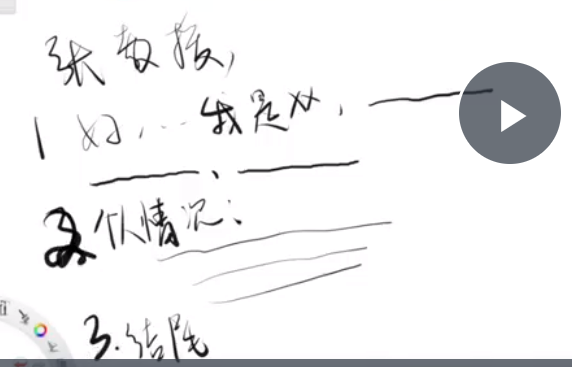 张教授,
1 好,...我是XX,
2.个人情况:
3.结尾